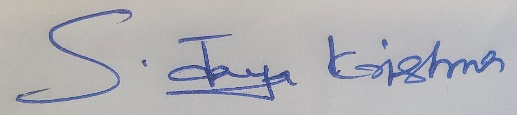 S. Jaya Krishna